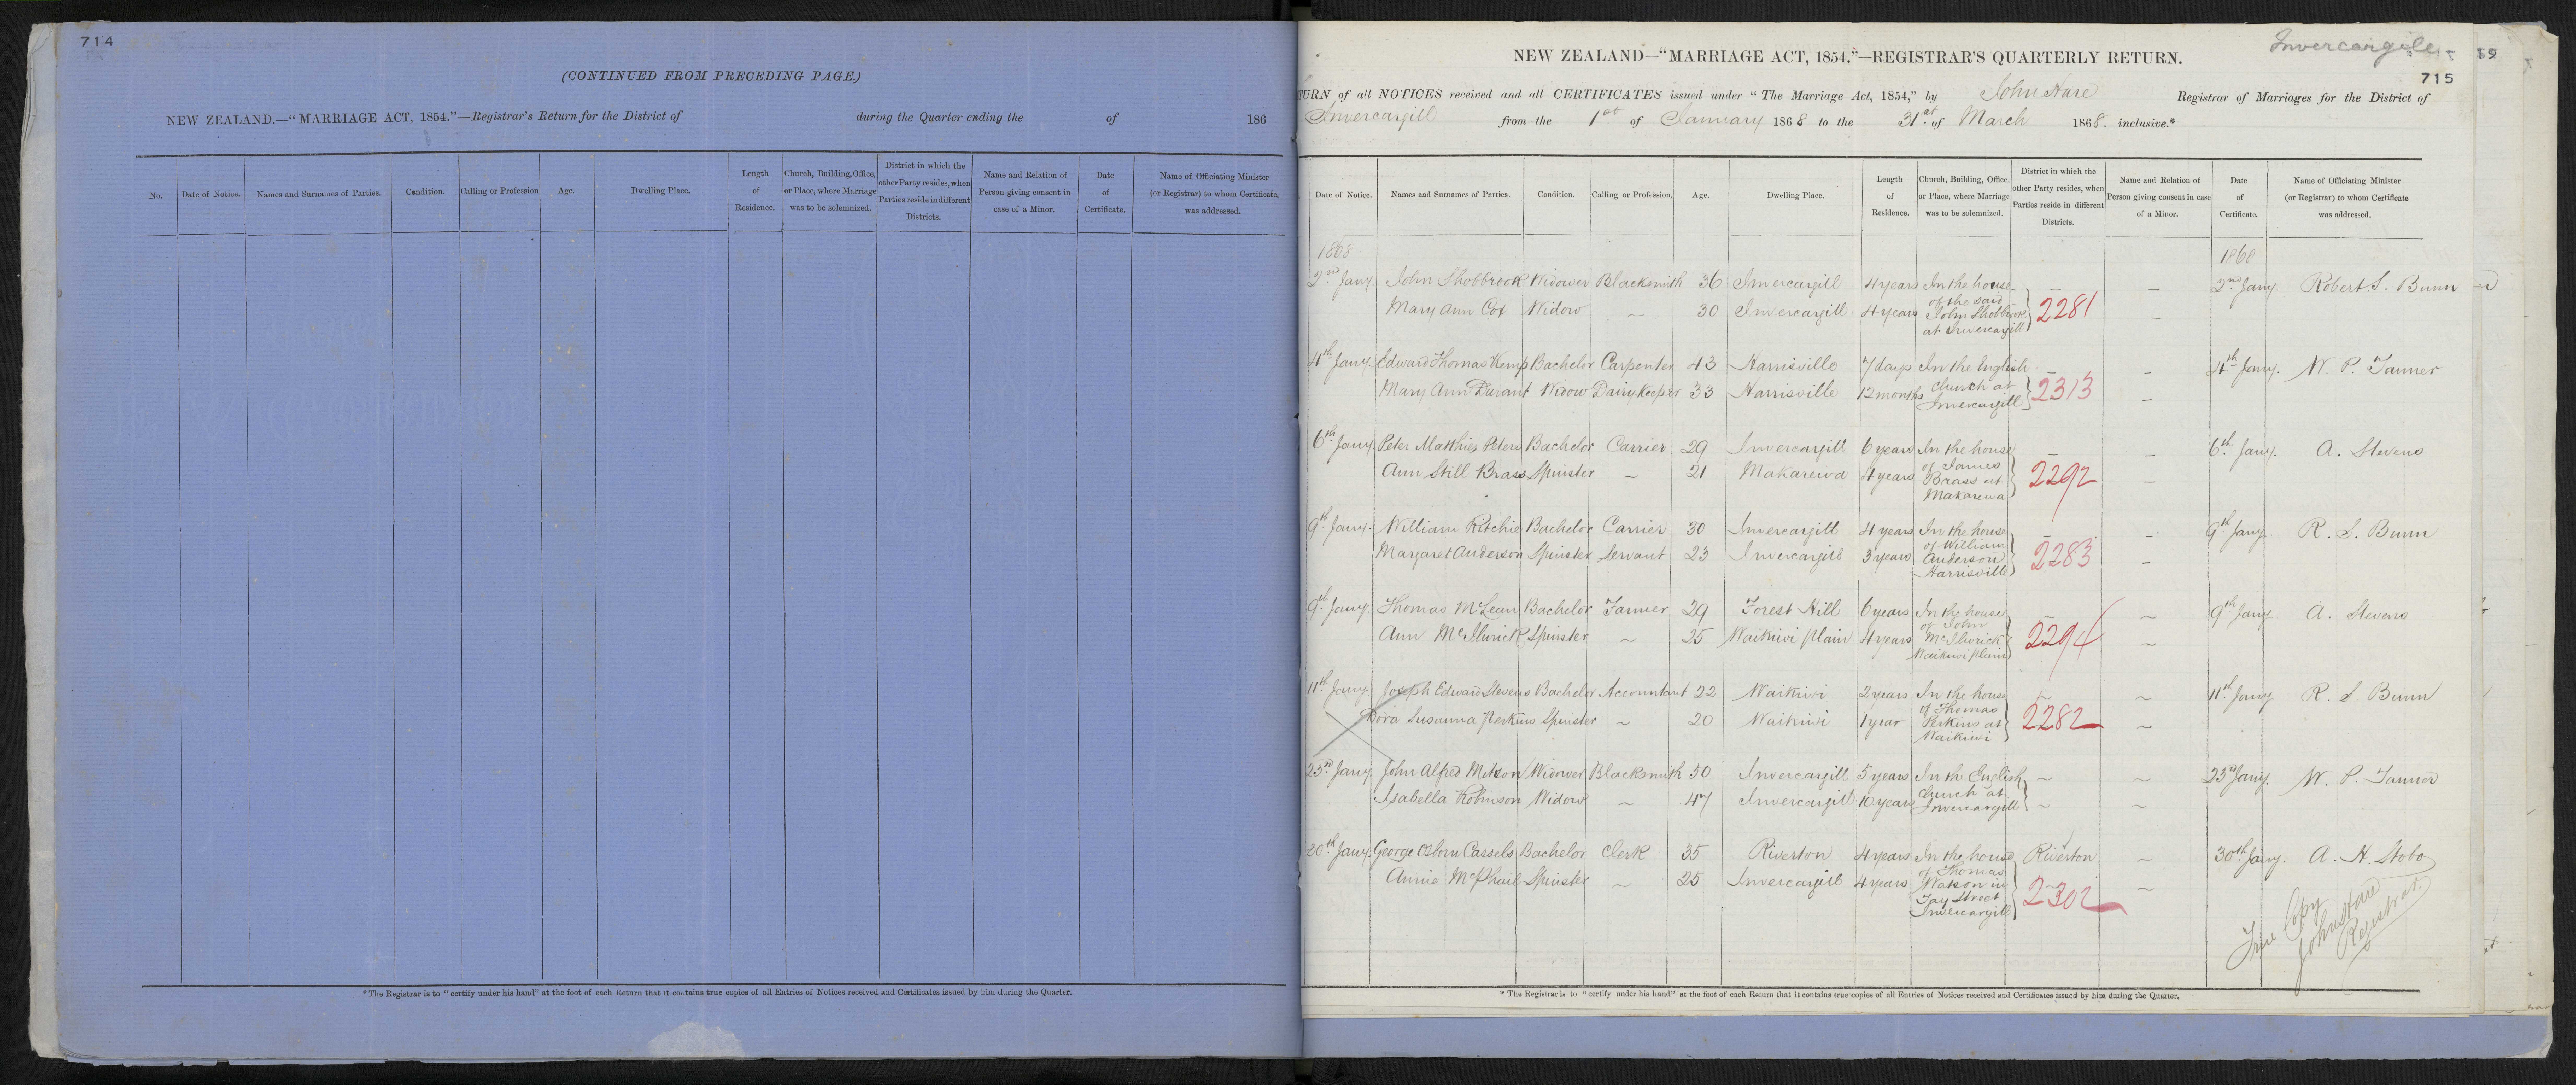 714
(CONTINUED FROM PRECEDING PAGE.)
NEW ZEALAND.—"MARRIAGE ACT, 1854."—Registrar's Return for the District of during the Quarter ending the of 186
No. Date of Notice. Names and Surnames of Parties. Condition. Calling or Profession Age. Dwelling Place. Length of Residence. Church, Building, Office, or Place, where Marriage was to be solemnized. District in which the other Party resides, when Parties reside in different Districts. Name and Relation of Person giving consent in case of a Minor. Date of Certificate. Name of Officiating Minister (or Registrar) to whom Certificate. was addressed.
*The Registrar is to "certify under his hand" at the foot of each Return that it contains true copies of all Entries of Notices received and Certificates issued by him during the Quarter.
Invercargill
715
NEW ZEALAND—"MARRIAGE ACT, 1854."—REGISTRAR'S QUARTERLY RETURN.
TURN of all NOTICES received and all CERTIFICATES issued under "The Marriage Act, 1854," by John Hare Registrar of Marriages for the District of
Invercargill from the 1st of January 1868 to the 31st of March 1868. inclusive.*
Date of Notice. Names and Surnames of Parties. Condition. Calling or Profession. Age. Dwelling Place. Length of Residence. Church, Building, Office, or Place, where Marriage was to be solemnized. District in which the other Party resides, when Parties reside in different Districts. Name and Relation of Person giving consent in case of a Minor. Date of Certificate. Name of Officiating Minister (or Registrar) to whom Certificate was addressed.
1868 1868
2nd Jany. John Shobbrook Widower Blacksmith 36 Invercargill 4 years In the house — — 2nd Jany. Robert S. Bunn
Mary Ann Cox Widow — 30 Invercargill 4 years of the said John Shobbrook at Invercargill 2281 —
4th Jany. Edward Thomas Kemp Bachelor Carpenter 43 Harrisville 7 days In the English — — 4th Jany. W. P. Tanner
Mary Ann Durant Widow Dairy Keeper 33 Harrisville 12 months Church at Invercargill 2313 —
6th Jany. Peter Matthies Peters Bachelor Carrier 29 Invercargill 6 years In the house — — 6th Jany. A. Stevens
Ann Still Brass Spinster — 21 Makarewa 4 years of James Brass at Makarewa 2292 —
9th Jany. William Ritchie Bachelor Carrier 30 Invercargill 4 years In the house — — 9th Jany. R. S. Bunn
Margaret Anderson Spinster Servant 23 Invercargill 3 years of William Anderson Harrisville 2283 —
9th Jany. Thomas McLean Bachelor Farmer 29 Forest Hill 6 years In the house — ~ 9th Jany. A. Stevens
Ann McIlwrick Spinster ~ 25 Waikiwi Plain 4 years of John McIlwrick Waikiwi Plain 2294 ~
11th Jany. Joseph Edward Stevens Bachelor Accountant 22 Waikiwi 2 years In the house ~ ~ 11th Jany R. S. Bunn
Dora Susanna Perkins Spinster ~ 20 Waikiwi 1 year of Thomas Perkins at Waikiwi 2282 ~
23rd Jany John Alfred Mitson Widower Blacksmith 50 Invercargill 5 years In the English ~ ~ 23rd Jany. W. P. Tanner
Isabella Robinson Widow ~ 47 Invercargill 10 years Church at Invercargill ~ ~
20th Jany. George Osborn Cassels Bachelor Clerk 35 Riverton 4 years In the house Riverton ~ 30th Jany. A. H. Stobo
Annie McPhail Spinster ~ 25 Invercargill 4 years of Thomas Watson in Tay Street Invercargill 2302 ~
True Copy
John Hare
Registrar.
*The Registrar is to "certify under his hand" at the foot of each Return that it contains true copies of all Entries of Notices received and Certificates issued by him during the Quarter.